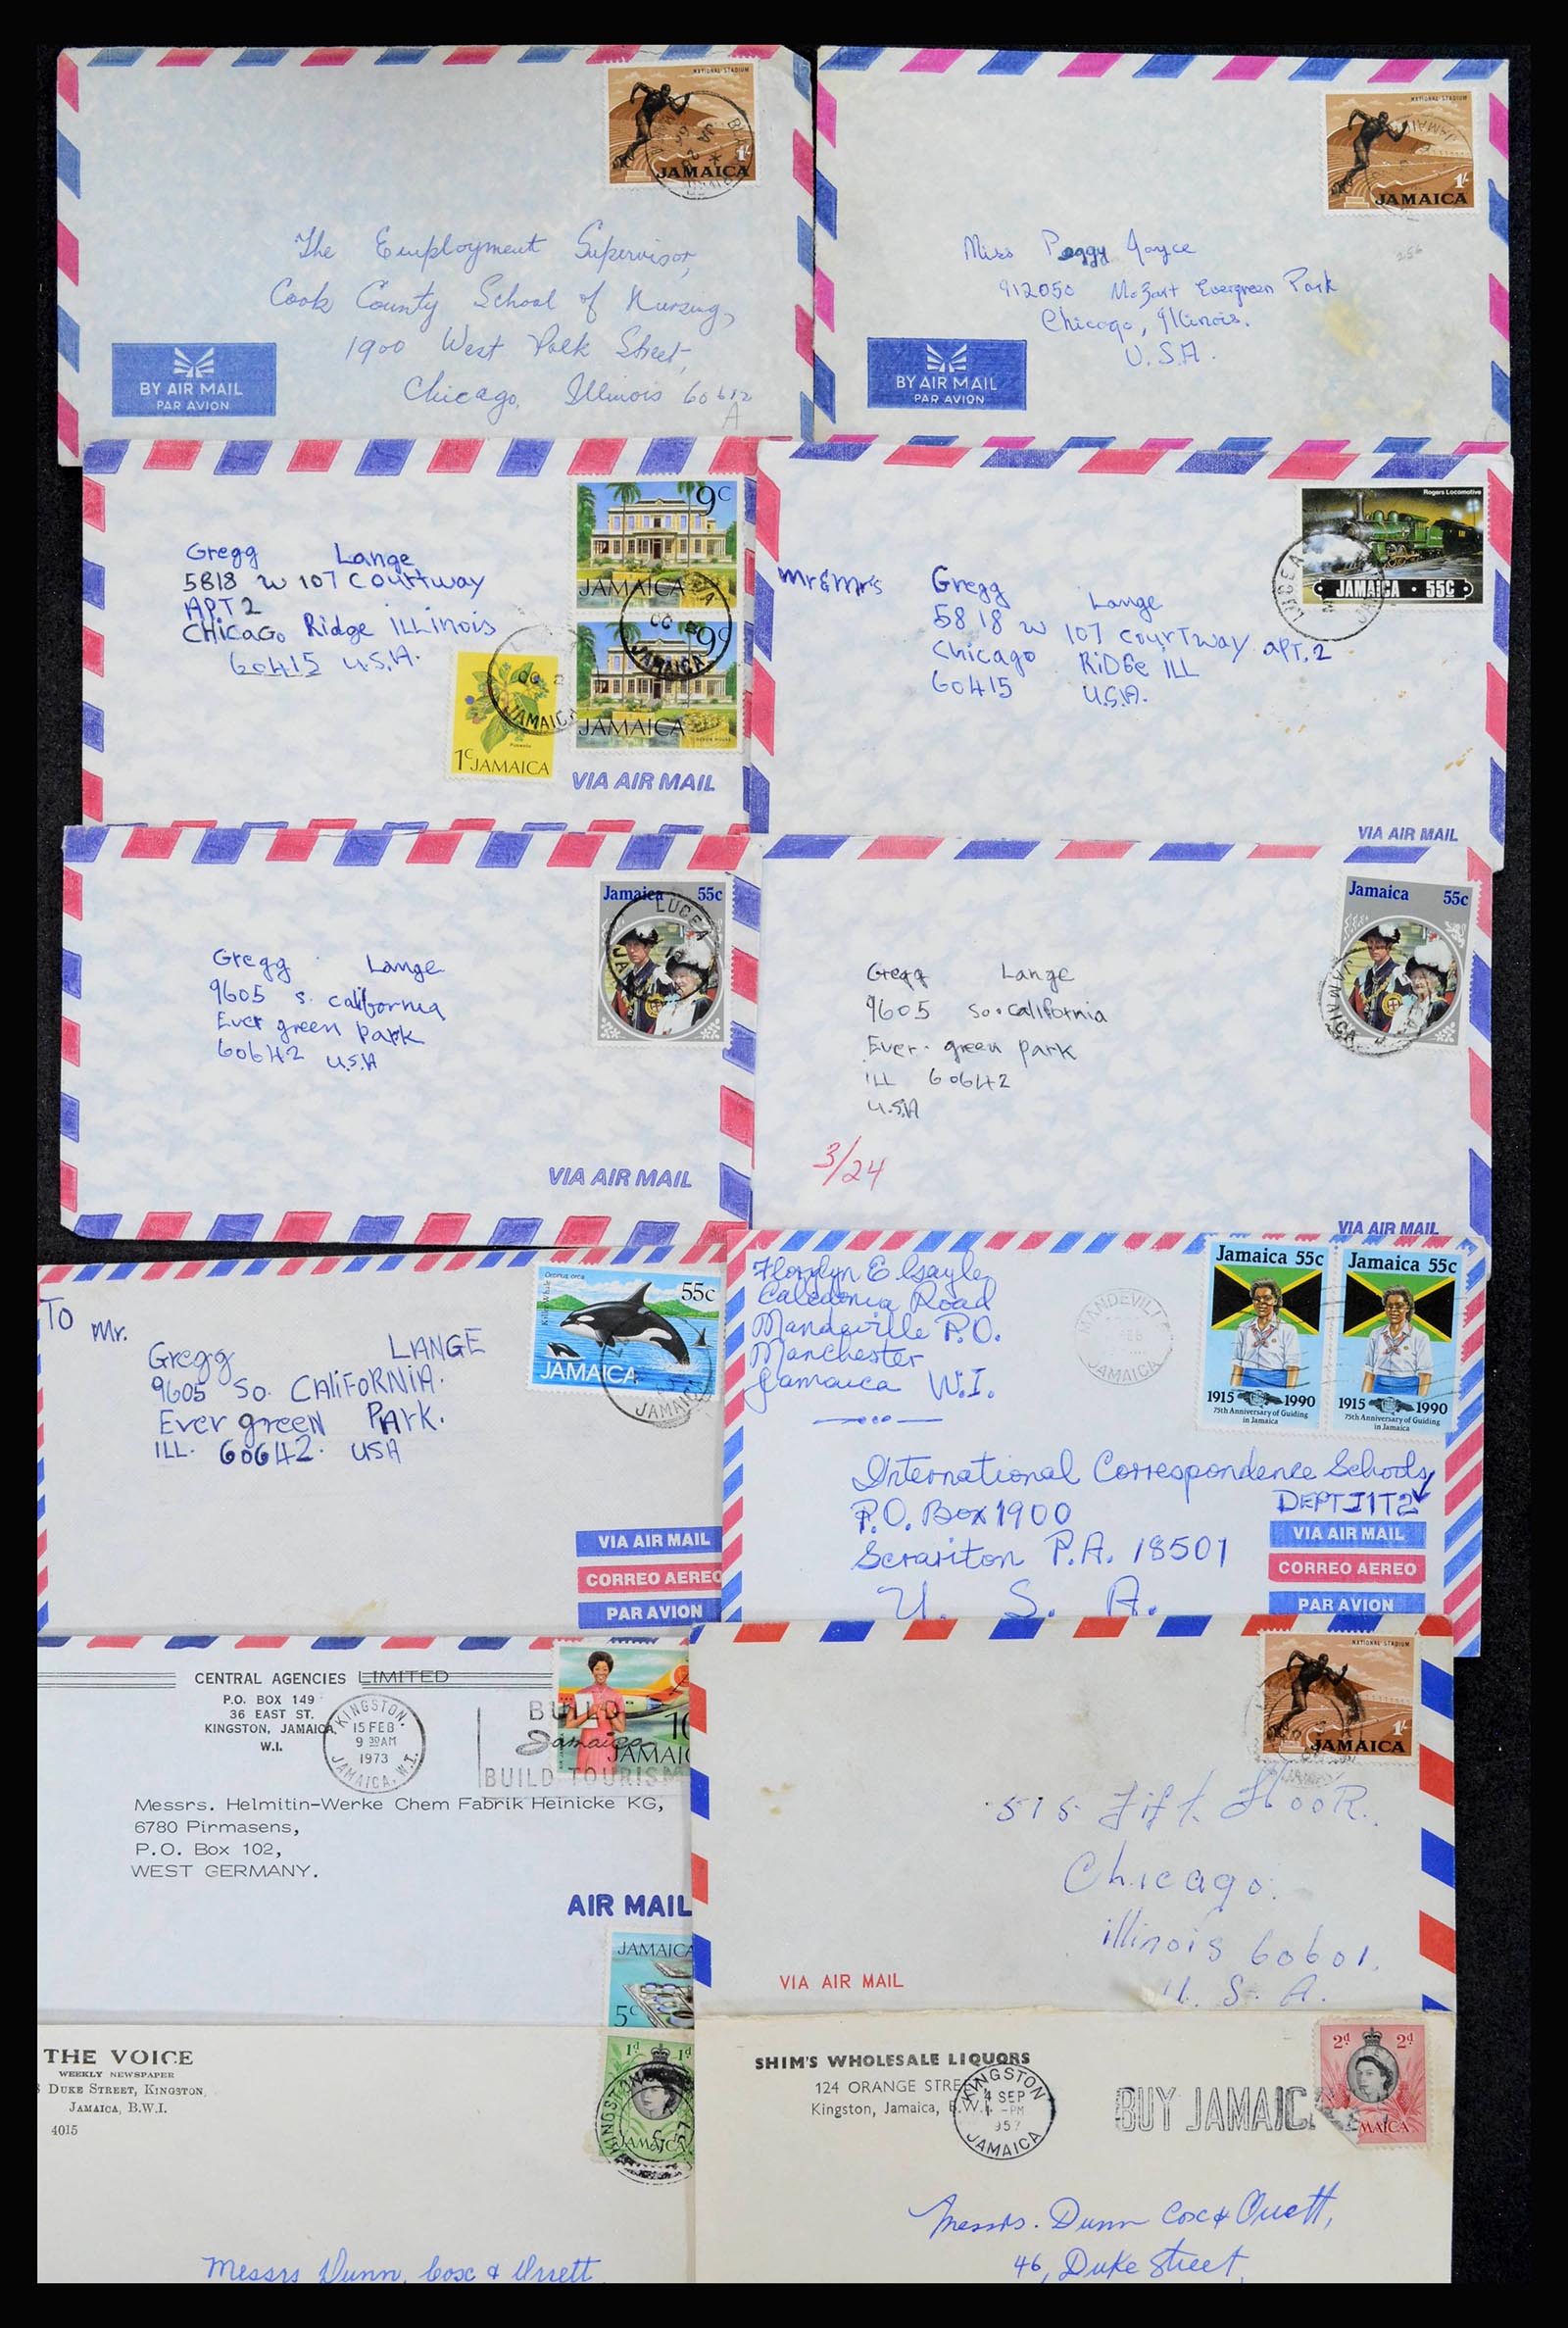 NATIONAL STADIUM
1/-
JAMAICA
The Employment Supervisor,
Cook County School of Nursing,
1900 West Polk Street,
Chicago, Illinois 60612
A
BY AIR MAIL
PAR AVION
NATIONAL STADIUM
1/-
JAMAICA
256
Miss Peggy Joyce
912050 Mozart Evergreen Park
Chicago, Illinois.
U.S.A.
BY AIR MAIL
PAR AVION
9c
JAMAICA
9c
JAMAICA
JAMAICA
Gregg Lange
5818 W 107 Courtway
APT 2
CHicaGo Ridge iLLinois
60415 U.S.A.
Pimento
1c JAMAICA
JAMAICA
VIA AIR MAIL
Rogers Locomotive
JAMAICA · 55C
LUCEA
Mr & Mr's Gregg Lange
5818 W 107 CourTway apT. 2
Chicago RiDGe ILL
60415 U.S.A.
VIA AIR MAIL
Jamaica 55c
LUCEA
Gregg Lange
9605 s. california
Ever green park
60642 U.S.A
VIA AIR MAIL
Jamaica 55c
JAMAICA
Gregg Lange
9605 So. California
Ever. green park
ILL 60642
U.S.A
3/24
VIA AIR MAIL
Orcinus orca
Killer Whale
55c
JAMAICA
JAMAICA
TO Mr.
Gregg LANGE
9605 So. CALiFoRNiA.
Ever green PArk.
ILL. 60642. USA
VIA AIR MAIL
CORREO AEREO
PAR AVION
E Gayle
Caledonia Road
Mandeville P.O.
Manchester
Jamaica W.I.
MANDEVILLE
FEB
JAMAICA
Jamaica 55c
1915 1990
75th Anniversary of Guiding
in Jamaica
Jamaica 55c
1915 1990
75th Anniversary of Guiding
in Jamaica
International Correspondence Schools
DEPT I1T2
P.O. Box 1900
Scrariton P.A. 18501
U. S. A.
VIA AIR MAIL
CORREO AEREO
PAR AVION
CENTRAL AGENCIES LIMITED
P.O. BOX 149
36 EAST ST.
KINGSTON, JAMAICA
W.I.
KINGSTON.
15 FEB
9 30AM
1973
JAMAICA. W.I.
BUILD
Jamaica
BUILD TOURISM
10
JAMAIC
Messrs. Helmitin-Werke Chem Fabrik Heinicke KG,
6780 Pirmasens,
P.O. Box 102,
WEST GERMANY.
AIR MAIL
JAMAICA
5c
NATIONAL STADIUM
1/-
JAMAICA
515 Fift. FlooR.
Chicago.
illinois 60601.
U. S. A.
VIA AIR MAIL
THE VOICE
WEEKLY NEWSPAPER
DUKE STREET, KINGSTON,
JAMAICA, B.W.I.
4015
1d 1d
KINGSTON
JAMAICA
Messrs Dunn, Cox & Orrett
SHIM'S WHOLESALE LIQUORS
124 ORANGE STRE
Kingston, Jamaica, B.W.I.
KINGSTON
4 SEP
-PM
957
JAMAICA
BUY JAMAICA
2d 2d
MAICA
Messrs. Dunn Cox & Orrett,
46, Duke Street,